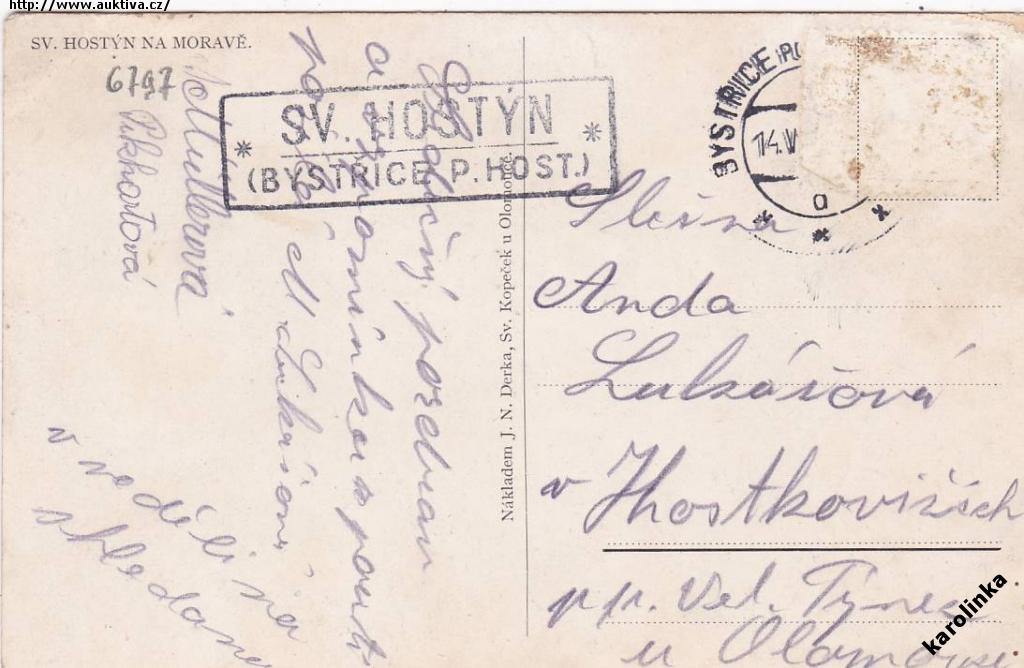 http://www.auktiva.cz/
SV. HOSTÝN NA MORAVĚ.
6797
SV. HOSTÝN
(BYSTŘICE P. HOST.)
BYSTŘICE PO
14.V
a
Srdečný pozdrav
a vzpomínka s pouti
M. Lukášová
Müllerová
Pukhartová
v neděli na
shledanou
Nákladem J. N. Derka, Sv. Kopeček u Olomouce.
Slečna
Anda
Lukášová
v Hostkovižích
pp. Vel. Týnec
u Olomouce
karolinka